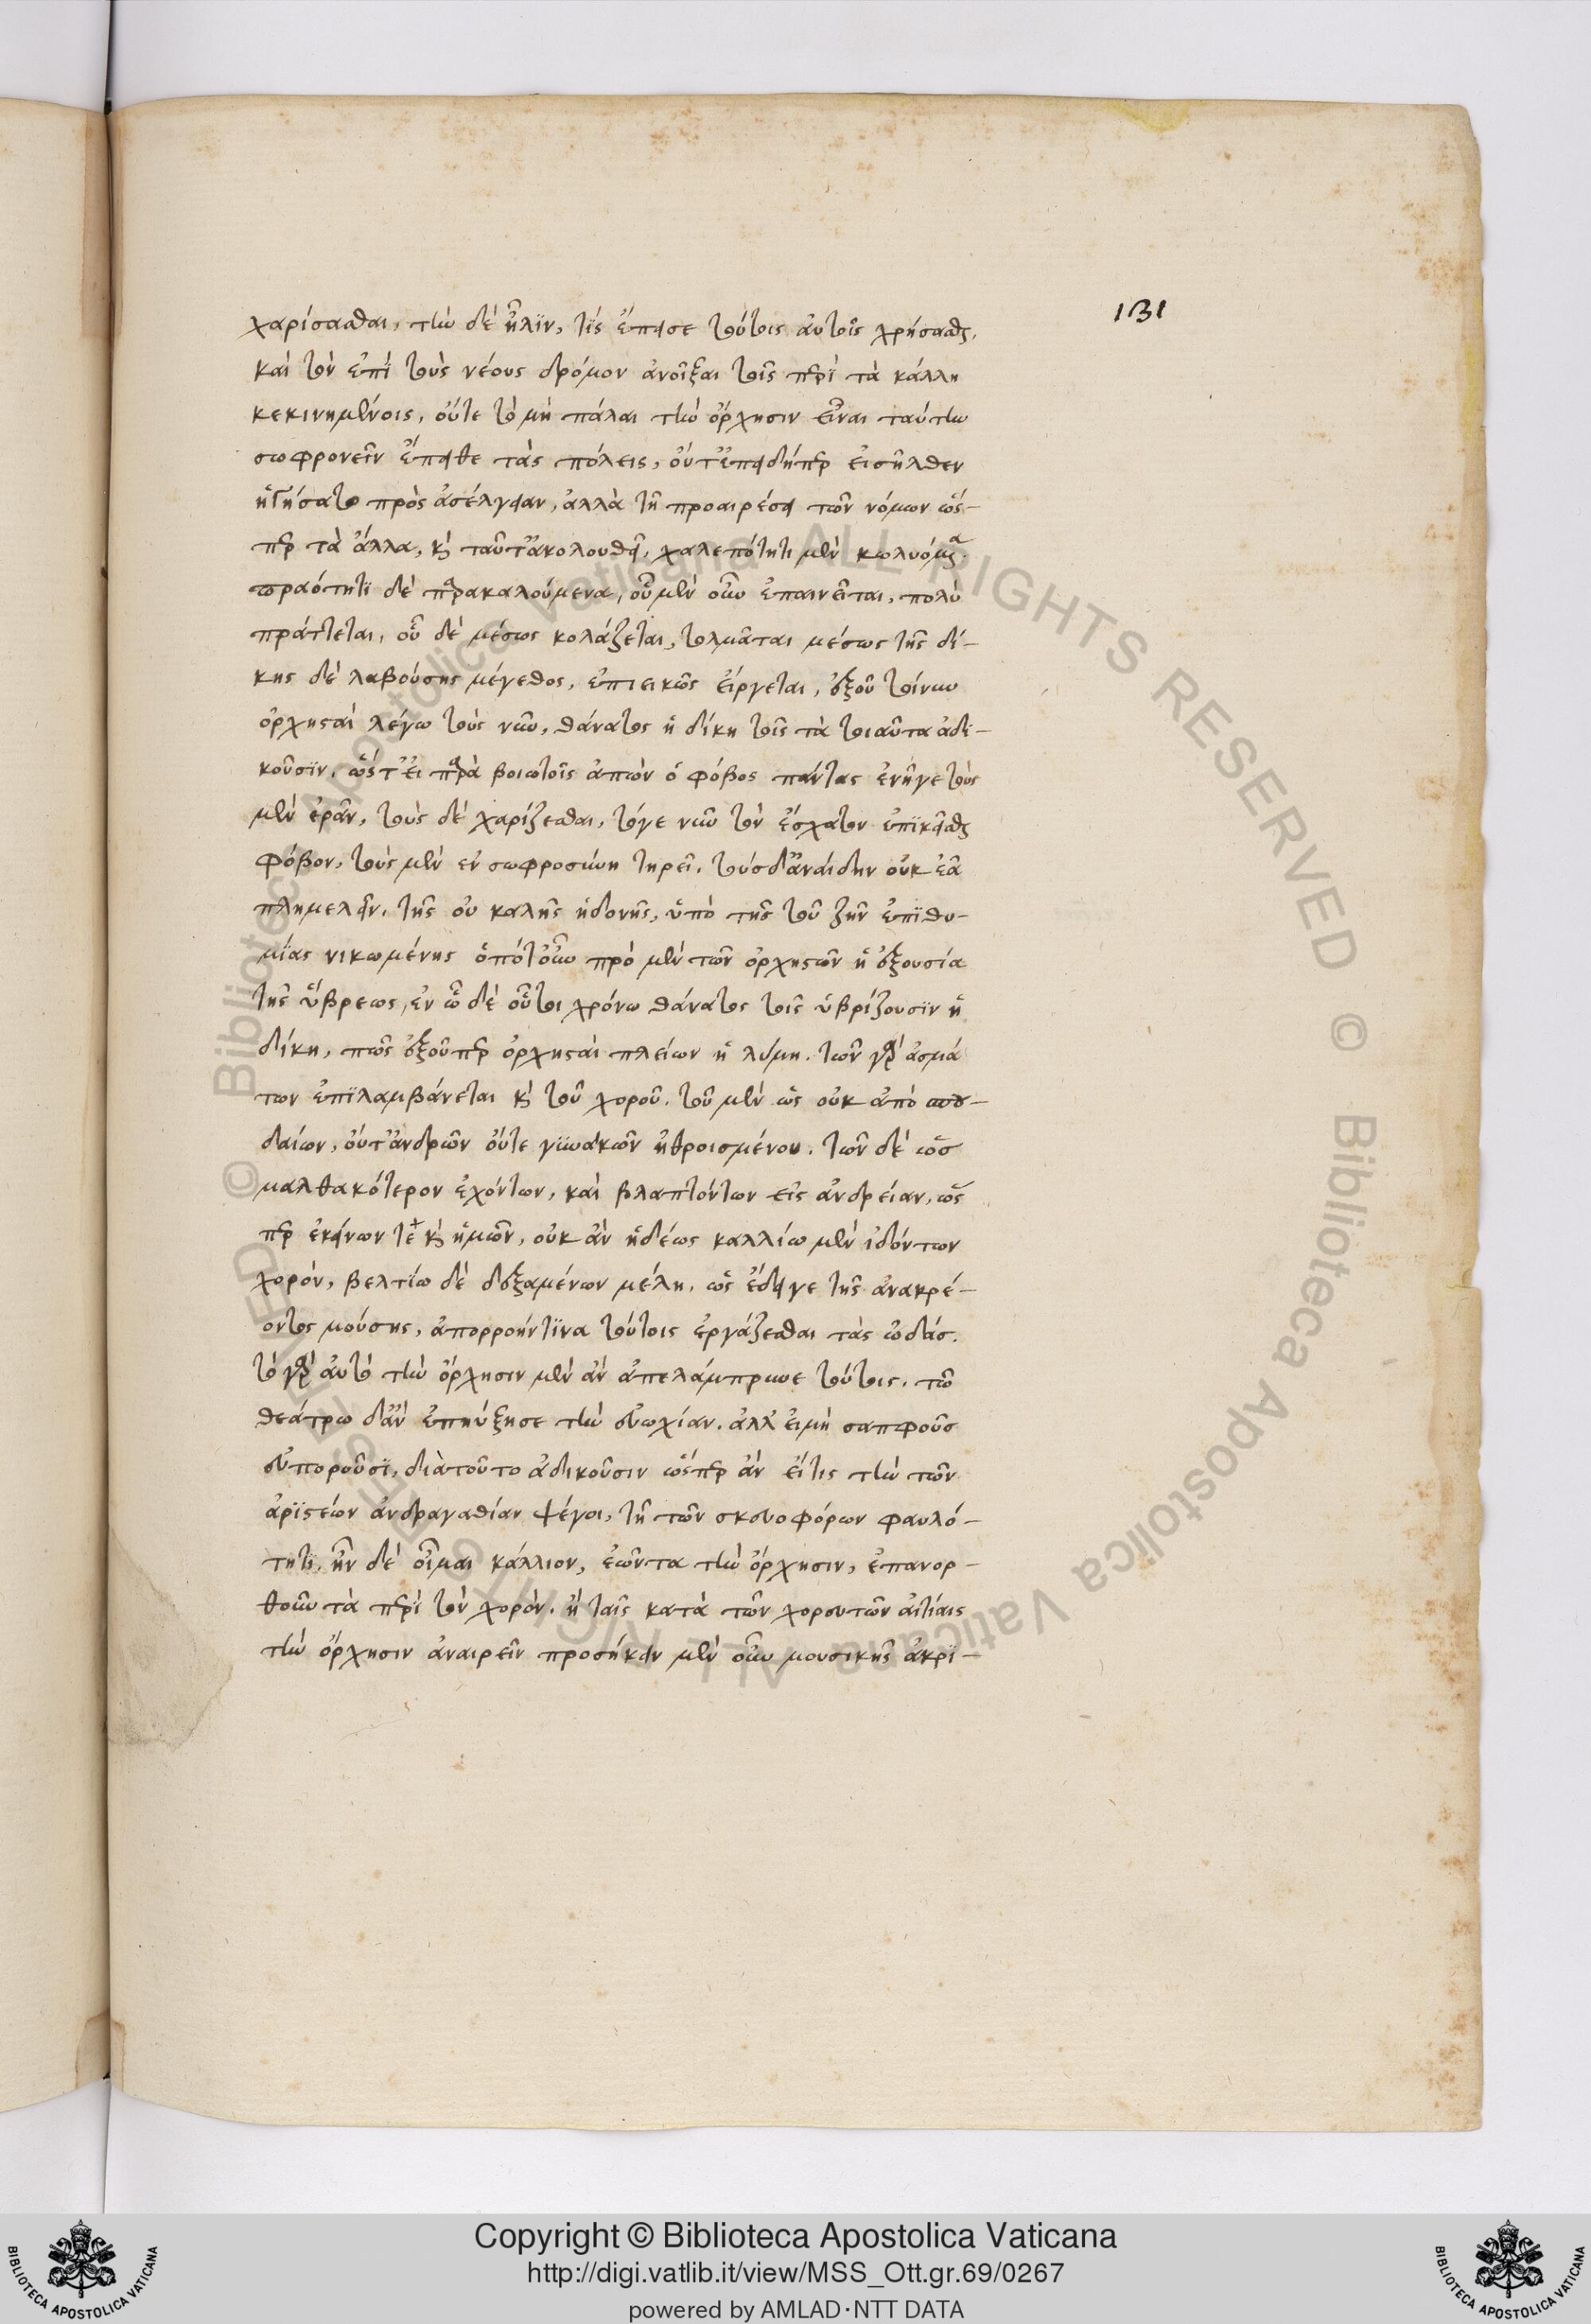 131
χαρίσασθαι, τὴν δὲ ἦλιν, τίς ἔπεισε τούτοις αὐτοῖς χρήσασθαι,
καὶ τὸν ἐπὶ τοὺς νέους δρόμον ἀνοῖξαι τοῖς περὶ τὰ κάλλη
κεκινημένοις, οὔτε τὸ μὴ πάλαι τὴν ὄρχησιν εἶναι ταύτην
σωφρονεῖν ἔπειθε τὰς πόλεις, οὔτ' ἐπειδήπερ εἰσῆλθεν
ἡγήσατο πρὸς ἀσέλγειαν, ἀλλὰ τῇ προαιρέσει τῶν νόμων ὥσ-
περ τὰ ἄλλα, καὶ ταῦτ' ἀκολουθεῖ, χαλεπότητι μὲν κωλυόμενα.
πραότητι δὲ παρακαλούμενα, οὗ μὲν οὖν ἐπαινεῖται, πολὺ
πράττεται, οὗ δὲ μέσως κολάζεται, τολμᾶται μέσως τῆς δί-
κης δὲ λαβούσης μέγεθος, ἐπιεικῶς εἴργεται, ἐξοῦ τοίνυν
ὀρχησταὶ λέγω τοὺς νῦν, θάνατος ἡ δίκη τοῖς τὰ τοιαῦτα ἀδι-
κοῦσιν, ὥστ' εἰ παρὰ βοιωτοῖς ἀπὼν ὁ φόβος πάντας ἐνῆγε τοὺς
μὲν ἐρᾶν, τοὺς δὲ χαρίζεσθαι, τόγε νῦν τὸν ἔσχατον ἐπικεῖσθαι
φόβον, τοὺς μὲν ἐν σωφροσύνη τηρεῖ. τοὺσ δ' ἀναίδην οὐκ ἐᾶ
πλημελεῖν, τῆς οὐ καλῆς ἡδονῆς, ὑπὸ τῆς τοῦ ζῆν ἐπιθυ-
μίας νικωμένης ὁπότ' οὖν πρὸ μὲν τῶν ὀρχηστῶν ἡ ἐξουσία
τῆς ὕβρεως, ἐν ᾧ δὲ οὗτοι χρόνω θάνατος τοῖς ὑβρίζουσιν ἡ
δίκη, πῶς ἐξοῦπερ ὀρχησταὶ πλείων ἡ λύμη. τῶν γὰρ ἀσμά
των ἐπιλαμβάνεται καὶ τοῦ χοροῦ. τοῦ μὲν ὡς οὐκ ἀπὸ σπου-
δαίων, οὔτ' ἀνδρῶν οὔτε γυναικῶν ἠθροισμένου. τῶν δὲ ὡσ
μαλθακότερον ἐχόντων, καὶ βλαπτόντων εἰς ἀνδρείαν, ὥσ
περ ἐκείνων τε καὶ ἡμῶν, οὐκ ἂν ἡδέως καλλίω μὲν ἰδόντων
χορὸν, βελτίω δὲ δεξαμένων μέλη, ὡς ἔδειγε τῆς ἀνακρέ-
οντος μούσης, ἀπορροήν τινα τούτοις ἐργάζεσθαι τὰς ὠδάσ.
τὸ γὰρ αὐτὸ τὴν ὄρχησιν μὲν ἂν ἀπελάμπρυνε τούτοις, τῶ
θεάτρω δ' ἂν ἐπηύξησε τὴν εὐωχίαν. ἀλλ' εἰ μὴ σαπφοῦσ
εὐποροῦσι, διὰτοῦτο ἀδικοῦσιν ὥσπερ ἂν εἴ τις τὴν τῶν
ἀριστέων ἀνδραγαθίαν ψέγοι, τῇ τῶν σκευοφόρων φαυλό-
τητι, ἦν δὲ οἶμαι κάλλιον, ἐῶντα τὴν ὄρχησιν, ἐπανορ-
θοῦν τὰ περὶ τὸν χορὸν. ἢ ταῖς κατὰ τῶν χορευτῶν αἰτίαις
τὴν ὄρχησιν ἀναιρεῖν προσήκειν μὲν οὖν μουσικῆς ἀκρι-
Copyright © Biblioteca Apostolica Vaticana
http://digi.vatlib.it/view/MSS_Ott.gr.69/0267
powered by AMLAD·NTT DATA
BIBLIOTECA APOSTOLICA VATICANA
BIBLIOTECA APOSTOLICA VATICANA
© Biblioteca Apostolica Vaticana ALL RIGHTS RESERVED © Biblioteca Apostolica Vaticana ALL RIGHTS RESERVED